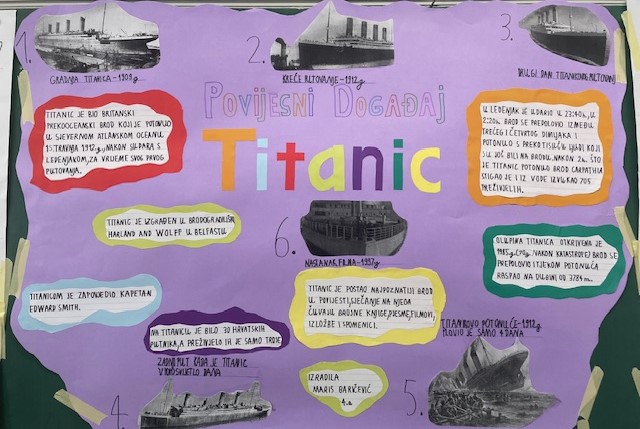 1.
GRADNJA TITANICA-1909g
2.
KREĆE PUTOVANJE-1912g
3.
DRUGI DAN TITANIKOVE PLOVIDBE
POVIJESNI DOGAĐAJ
Titanic
TITANIC JE BIO BRITANSKI
PREKOOCEANSKI BROD KOJI JE POTONUO
U SJEVERNOM ATLANSKOM OCEANU
15. TRAVNJA 1912.g, NAKON SUDARA S
LEDENJAKOM, ZA VRIJEME SVOG PRVOG
PUTOVANJA.
U LEDENJAK JE UDARIO U 23:40h, U
2:20h BROD SE PREPOLOVIO IZMEĐU
TREĆEG I ČETVRTOG DIMNJAKA I
POTONUO S PREKO TISUĆU LJUDI KOJI
SU JOŠ BILI NA BRODU. NAKON 2h, ŠTO
JE TITANIC POTONUO BROD CARPATHIA
STIGAO JE I IZ VODE IZVUKAO 705
PREŽIVJELIH.
TITANIC JE IZGRAĐEN U BRODOGRADILIŠTU
HARLAND AND WOLFF U BELFASTU.
6.
NASTANAK FILMA-1997g
OLUPINA TITANICA OTKRIVENA JE
1985.g. NAKON KATASTROFE) BROD SE
PREPOLOVIO I TJEKOM POTONUĆA
RASPAO NA DUBINI OD 3784m.
TITANICOM JE ZAPOVJEDIO KAPETAN
EDWARD SMITH.
TITANIC JE POSTAO NAJPOZNATIJI BROD
U POVIJESTI, SJEĆANJE NA NJEGA
ČUVAJU BROJNE KNJIGE, PJESME, FILMOVI,
IZLOŽBE I SPOMENICI.
NA TITANICU JE BILO 30 HRVATSKIH
PUTNIKA, A PREŽIVJELO IH JE SAMO TROJE
TITANIKOVO POTONUĆE-1912g
PLOVIO JE SAMO 4 DANA
ZADNJI PUT KADA JE TITANIC
VIDIO SVJETLO DANA
4.
IZRADILA
MARIS BARIČEVIĆ
4.a
5.